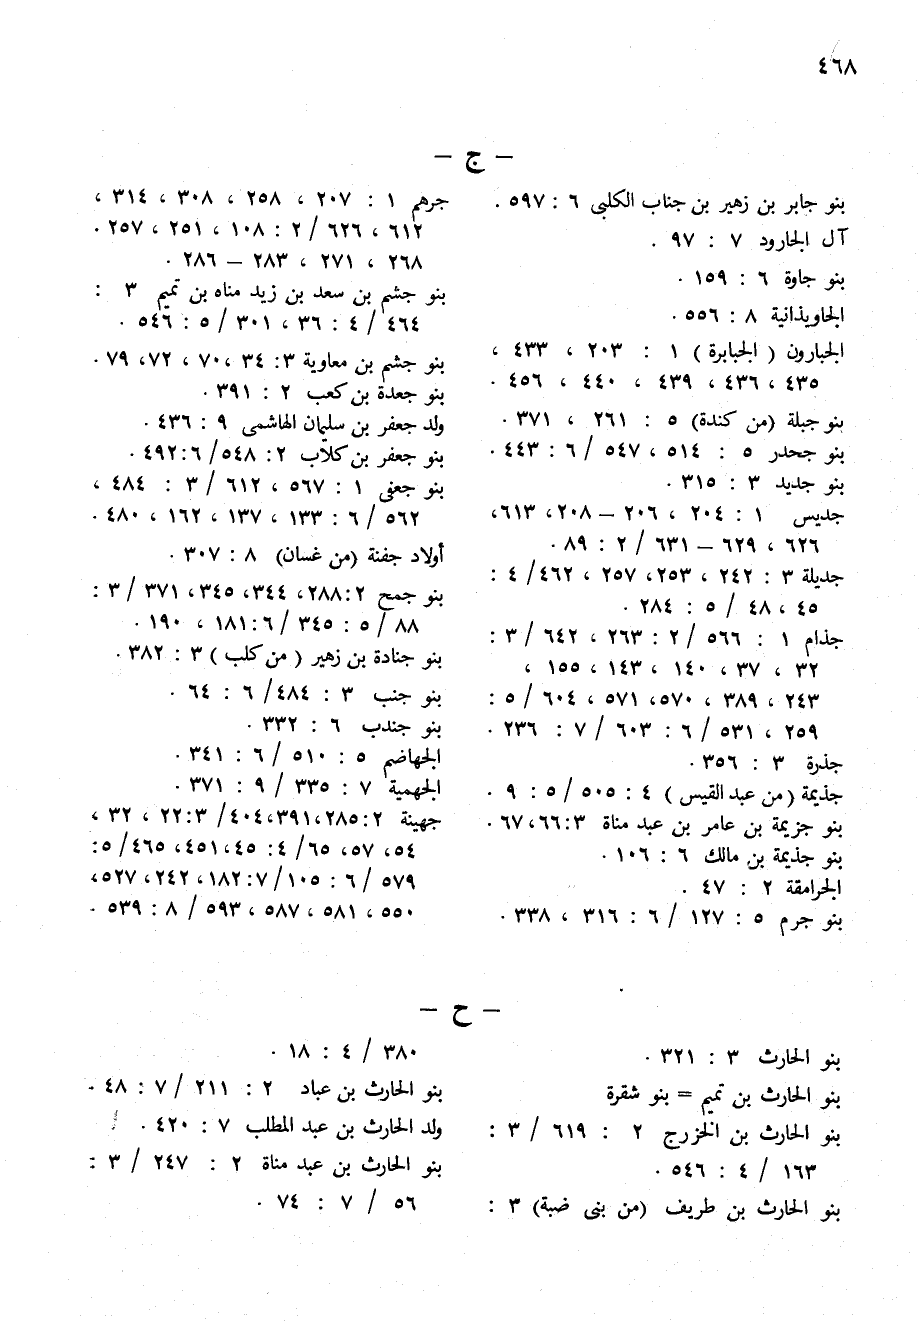 ٤٦٨
- ج -
بنو جابر بن زهير بن جناب الكلبى ٦ : ٥٩٧ .
آل الجارود ٧ : ٩٧ .
بنو جاوة ٦ : ١٥٩ .
الجاويذانية ٨ : ٥٥٦ .
الجبارون ( الجبابرة ) ١ : ٢٠٣ ، ٤٣٣ ،
٤٣٥ ، ٤٣٦ ، ٤٣٩ ، ٤٤٠ ، ٤٥٦ .
بنو جبلة (من كندة) ٥ : ٢٦١ ، ٣٧١ .
بنو جحدر ٥ : ٥١٤ ، ٥٤٧ / ٦ : ٤٤٣ .
بنو جديد ٣ : ٣١٥ .
جديس ١ : ٢٠٤ ، ٢٠٦ – ٢٠٨ ، ٦١٣ ،
٦٢٦ ، ٦٢٩ – ٦٣١ / ٢ : ٨٩ .
جديلة ٣ : ٢٤٢ ، ٢٥٣ ، ٢٥٧ ، ٤٦٢ / ٤ :
٤٥ ، ٤٨ / ٥ : ٢٨٤ .
جذام ١ : ٥٦٦ / ٢ : ٢٦٣ ، ٦٤٢ / ٣ :
٣٢ ، ٣٧ ، ١٤٠ ، ١٤٣ ، ١٥٥ ،
٢٤٣ ، ٣٨٩ ، ٥٧٠ ، ٥٧١ ، ٦٠٤ / ٥ :
٢٥٩ ، ٥٣١ / ٦ : ٦٠٣ / ٧ : ٢٣٦ .
جذرة ٣ : ٣٥٦ .
جذيمة (من عبد القيس ) ٤ : ٥٠٥ / ٥ : ٩ .
بنو جزيمة بن عامر بن عبد مناة ٣ : ٦٦ ، ٦٧ .
بنو جذيمة بن مالك ٦ : ١٠٦ .
الجرامقة ٢ : ٤٧ .
بنو جرم ٥ : ١٢٧ / ٦ : ٣١٦ ، ٣٣٨ .
جرهم ١ : ٢٠٧ ، ٢٥٨ ، ٣٠٨ ، ٣١٤ ،
٦١٢ ، ٦٢٦ / ٢ : ١٠٨ ، ٢٥١ ، ٢٥٧ .
٢٦٨ ، ٢٧١ ، ٢٨٣ – ٢٨٦ .
بنو جشم بن سعد بن زيد مناه بن تميم ٣ :
٤٦٤ / ٤ : ٣٦ ، ٣٠١ / ٥ : ٥٤٦ .
بنو جشم بن معاوية ٣ : ٣٤ ، ٧٠ ، ٧٢ ، ٧٩ .
بنو جعدة بن كعب ٢ : ٣٩١ .
ولد جعفر بن سليمان الهاشمى ٩ : ٤٣٦ .
بنو جعفر بن كلاب ٢ : ٥٤٨ / ٦ : ٤٩٢ .
بنو جعفى ١ : ٥٦٧ ، ٦١٢ / ٣ : ٤٨٤ ،
٥٦٢ / ٦ : ١٣٣ ، ١٣٧ ، ١٦٢ ، ٤٨٠ .
أولاد جفنة (من غسان) ٨ : ٣٠٧ .
بنو جمح ٢ : ٢٨٨ ، ٣٤٤ ، ٣٤٥ ، ٣٧١ / ٣ :
٨٨ / ٥ : ٣٤٥ / ٦ : ١٨١ ، ١٩٠ .
بنو جنادة بن زهير ( من كلب ) ٣ : ٣٨٢ .
بنو جنب ٣ : ٤٨٤ / ٦ : ٦٤ .
بنو جندب ٦ : ٣٣٢ .
الجهاضم ٥ : ٥١٠ / ٦ : ٣٤١ .
الجهمية ٧ : ٣٣٥ / ٩ : ٣٧١ .
جهينة ٢ : ٢٨٥ ، ٣٩١ ، ٤٠٤ / ٣ : ٢٢ ، ٣٢ ،
٥٤ ، ٥٧ ، ٦٥ / ٤ : ٤٥ ، ٤٥١ ، ٤٦٥ / ٥ :
٥٧٩ / ٦ : ١٠٥ / ٧ : ١٨٢ ، ٢٤٢ ، ٥٢٧ ،
٥٥٠ ، ٥٨١ ، ٥٨٧ ، ٥٩٣ / ٨ : ٥٣٩ .
- ح -
بنو الحارث ٣ : ٣٢١ .
بنو الحارث بن تميم = بنو شقرة
بنو الحارث بن الخزرج ٢ : ٦١٩ / ٣ :
١٦٣ / ٤ : ٥٤٦ .
بنو الحارث بن طريف (من بنى ضبة) ٣ :
٣٨٠ / ٤ : ١٨ .
بنو الحارث بن عباد ٢ : ٢١١ / ٧ : ٤٨ .
ولد الحارث بن عبد المطلب ٧ : ٤٢٠ .
بنو الحارث بن عبد مناة ٢ : ٢٤٧ / ٣ :
٥٦ / ٧ : ٧٤ .